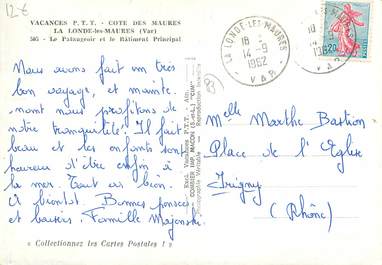 12€
VACANCES P. T. T. - COTE DES MAURES
LA LONDE-les-MAURES (Var)
505 - Le Pataugeoir et le Bâtiment Principal
Nous avons fait un très
bon voyage, et mainte-
nant nous profitons de
notre tranquilité! Il fait
beau et les enfants sont
heureux d'être enfin à
la mer. Tout va bien.
A bientôt. Bonnes pensées
et baisers. Famille Majenski
« Collectionnez les Cartes Postales ! »
Excl. Vacances P. T. T. - Alb.
COMBIER IMP. MACON (S.-et-L.) "CIM"
Photographie Véritable - Reproduction Interdite
LA LONDE-LES-MAURES
18 -
14 - 9
1962
VAR
1962
VAR
0,20
Melle Marthe Bastion
Place de l'Eglise
Irigny
(Rhône)